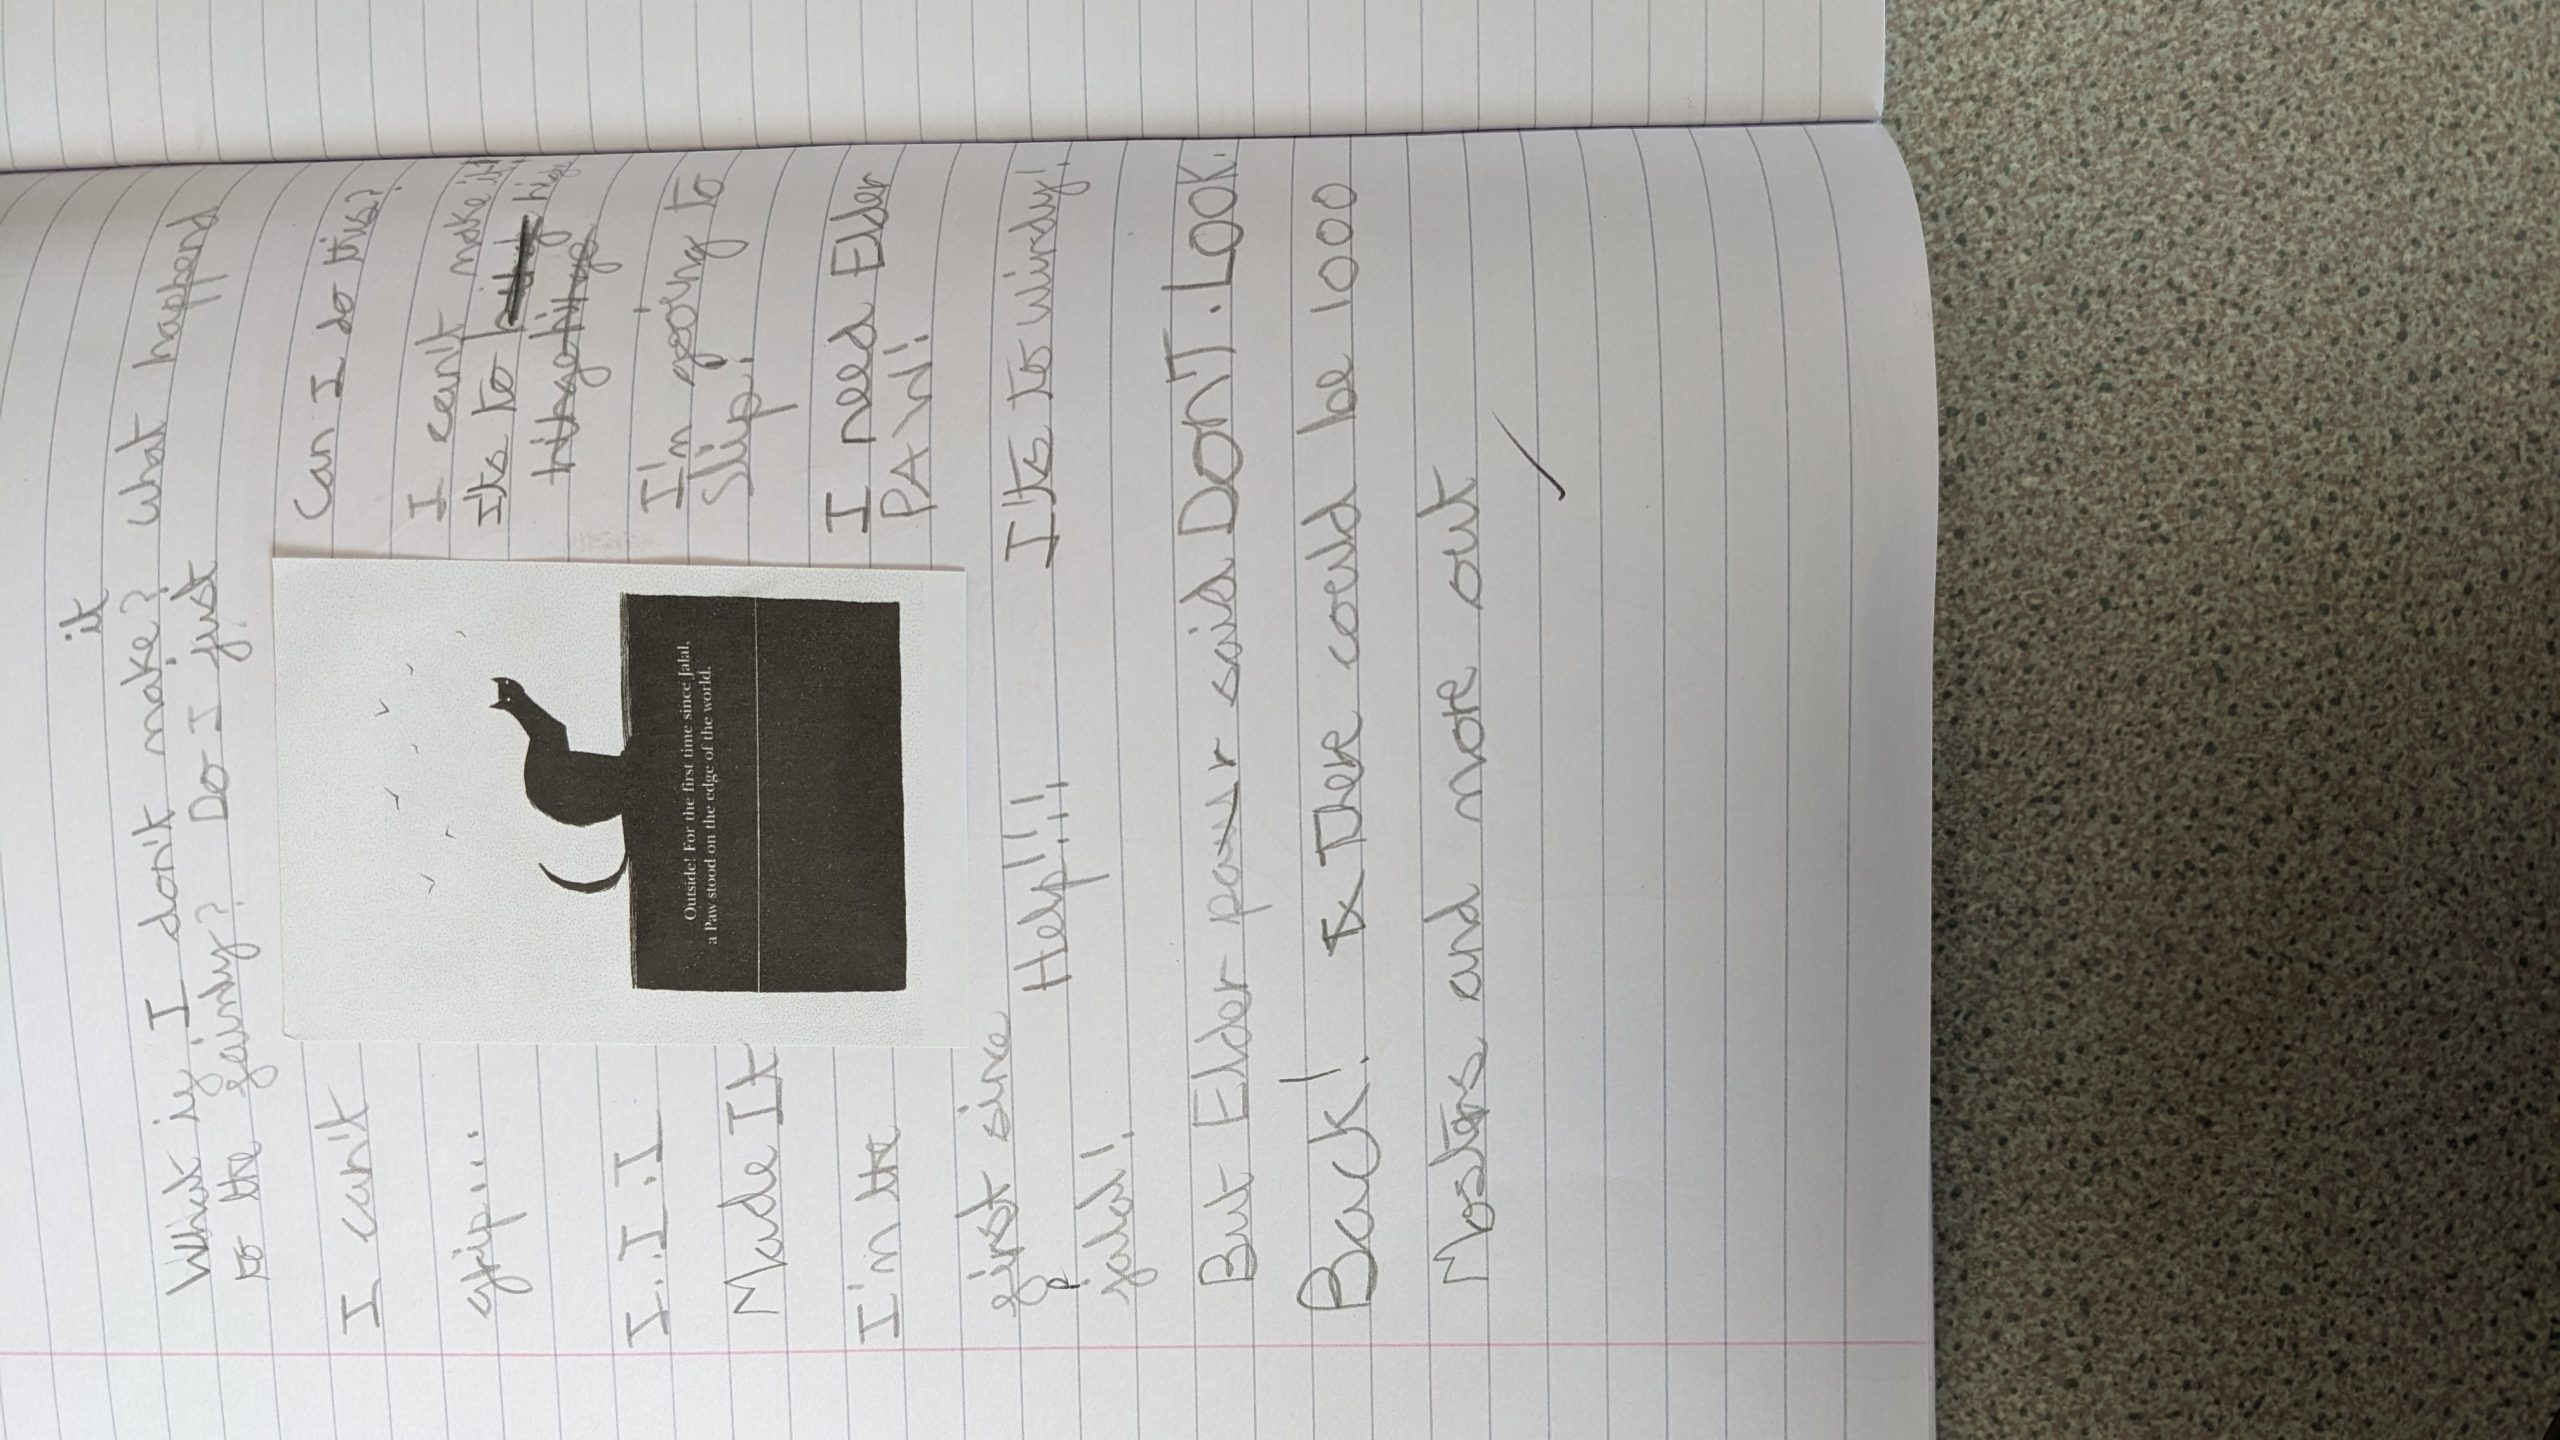 it
What if I don't make? what happend
to the fainly? Do I just
Can I do this?
I can't make it!
Its to high
I'm going to
Slip!
I need Elder
PAW!
Its to windy!
I can't
grip...
I..I..I
Made It
I'm the
first sine
jalal!
Help!!!
Outside! For the first time since Jalal,
a Paw stood on the edge of the world.
But Elder pawr said DON'T.LOOK.
Back! There could be 1000
Mosters and more out